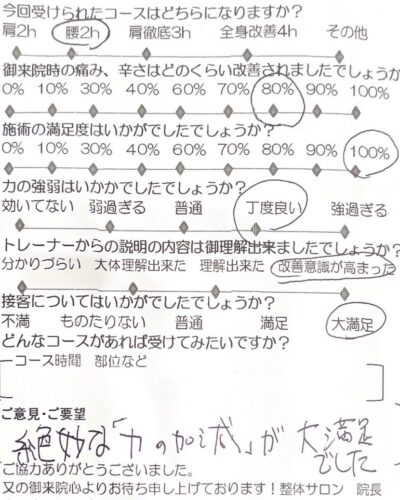 今回受けられたコースはどちらになりますか?
肩2h 腰2h 肩徹底3h 全身改善4h その他
御来院時の痛み、辛さはどのくらい改善されましたでしょうか
0% 10% 30% 40% 60% 70% 80% 90% 100%
施術の満足度はいかがでしたでしょうか?
0% 10% 30% 40% 60% 70% 80% 90% 100%
力の強弱はいかかでしたでしょうか?
効いてない 弱過ぎる 普通 丁度良い 強過ぎる
トレーナーからの説明の内容は御理解出来ましたでしょうか?
分かりづらい 大体理解出来た 理解出来た 改善意識が高まった
接客についてはいかがでしたでしょうか?
不満 ものたりない 普通 満足 大満足
どんなコースがあれば受けてみたいですか?
コース時間 部位など
ご意見・ご要望
絶妙な「力の加減」が 大満足
でした
ご協力ありがとうございました。
又の御来院心よりお待ち申し上げております!整体サロン 院長